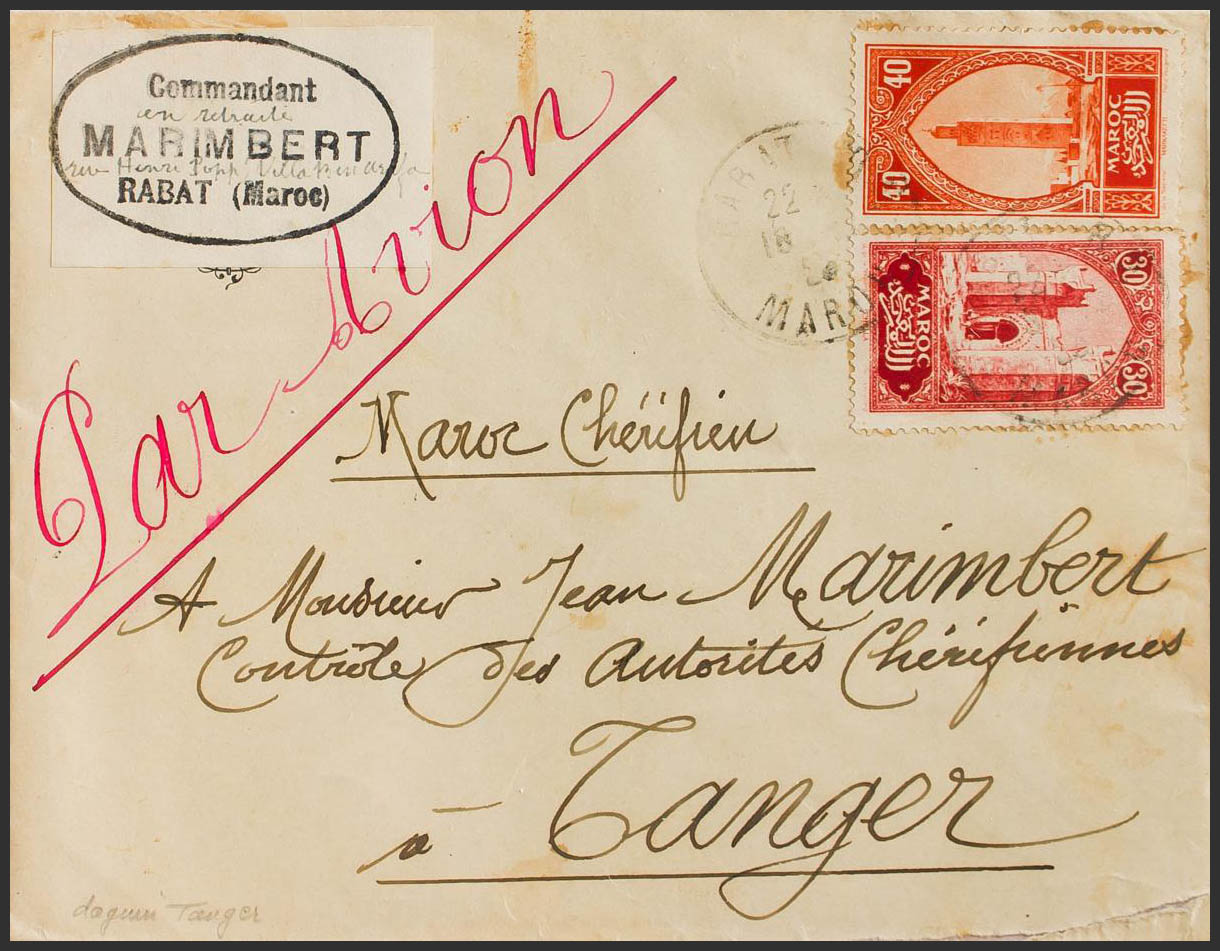 Commandant
en retraite
MARIMBERT
rue Henri Popp Villa
RABAT (Maroc)
Par Avion
40
40
MAROC
المغرب
30
30
MAROC
المغرب
RABAT
22
MAROC
Maroc Chérifien
A Monsieur Jean Marimbert
Contrôle des Autorités Chérifiennes
à Tanger
daguin Tanger